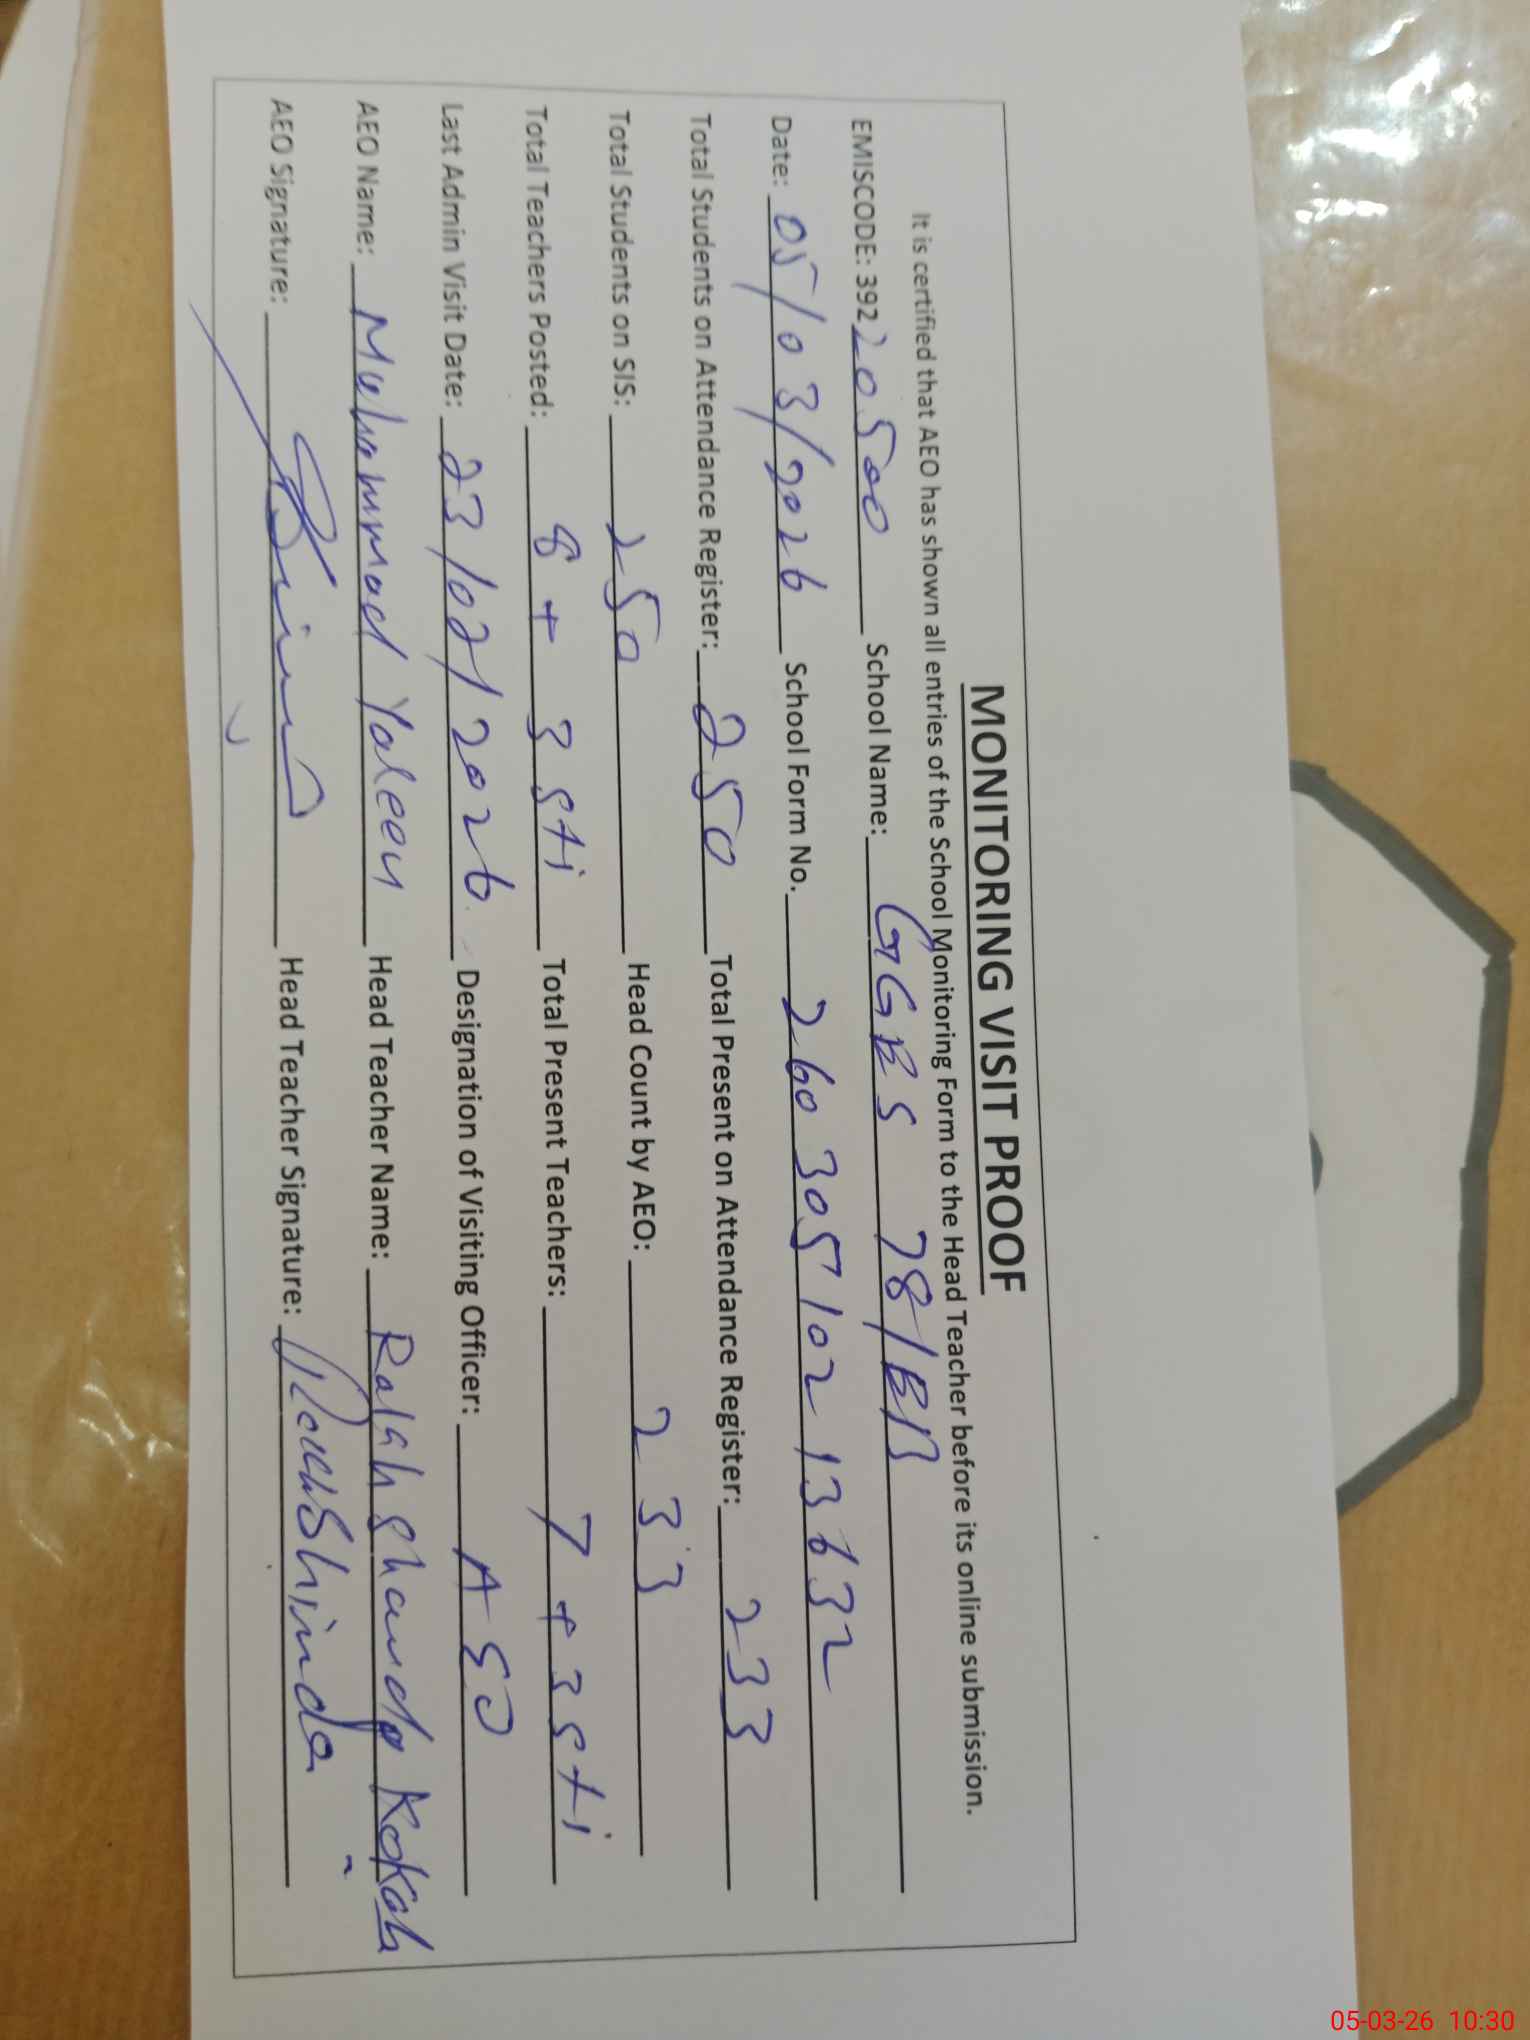 MONITORING VISIT PROOF
It is certified that AEO has shown all entries of the School Monitoring Form to the Head Teacher before its online submission.
EMISCODE: 39220500 School Name: GGES 78/BR
Date: 05/03/2026 School Form No. 26030510213632
Total Students on Attendance Register: 250 Total Present on Attendance Register: 233
Total Students on SIS: 250 Head Count by AEO: 233
Total Teachers Posted: 8 + 3 sti Total Present Teachers: 7 + 3 sti
Last Admin Visit Date: 23/02/2026 Designation of Visiting Officer: AEO
AEO Name: Muhammad Yaleen Head Teacher Name: Kokab
AEO Signature: Head Teacher Signature:
05-03-26 10:30